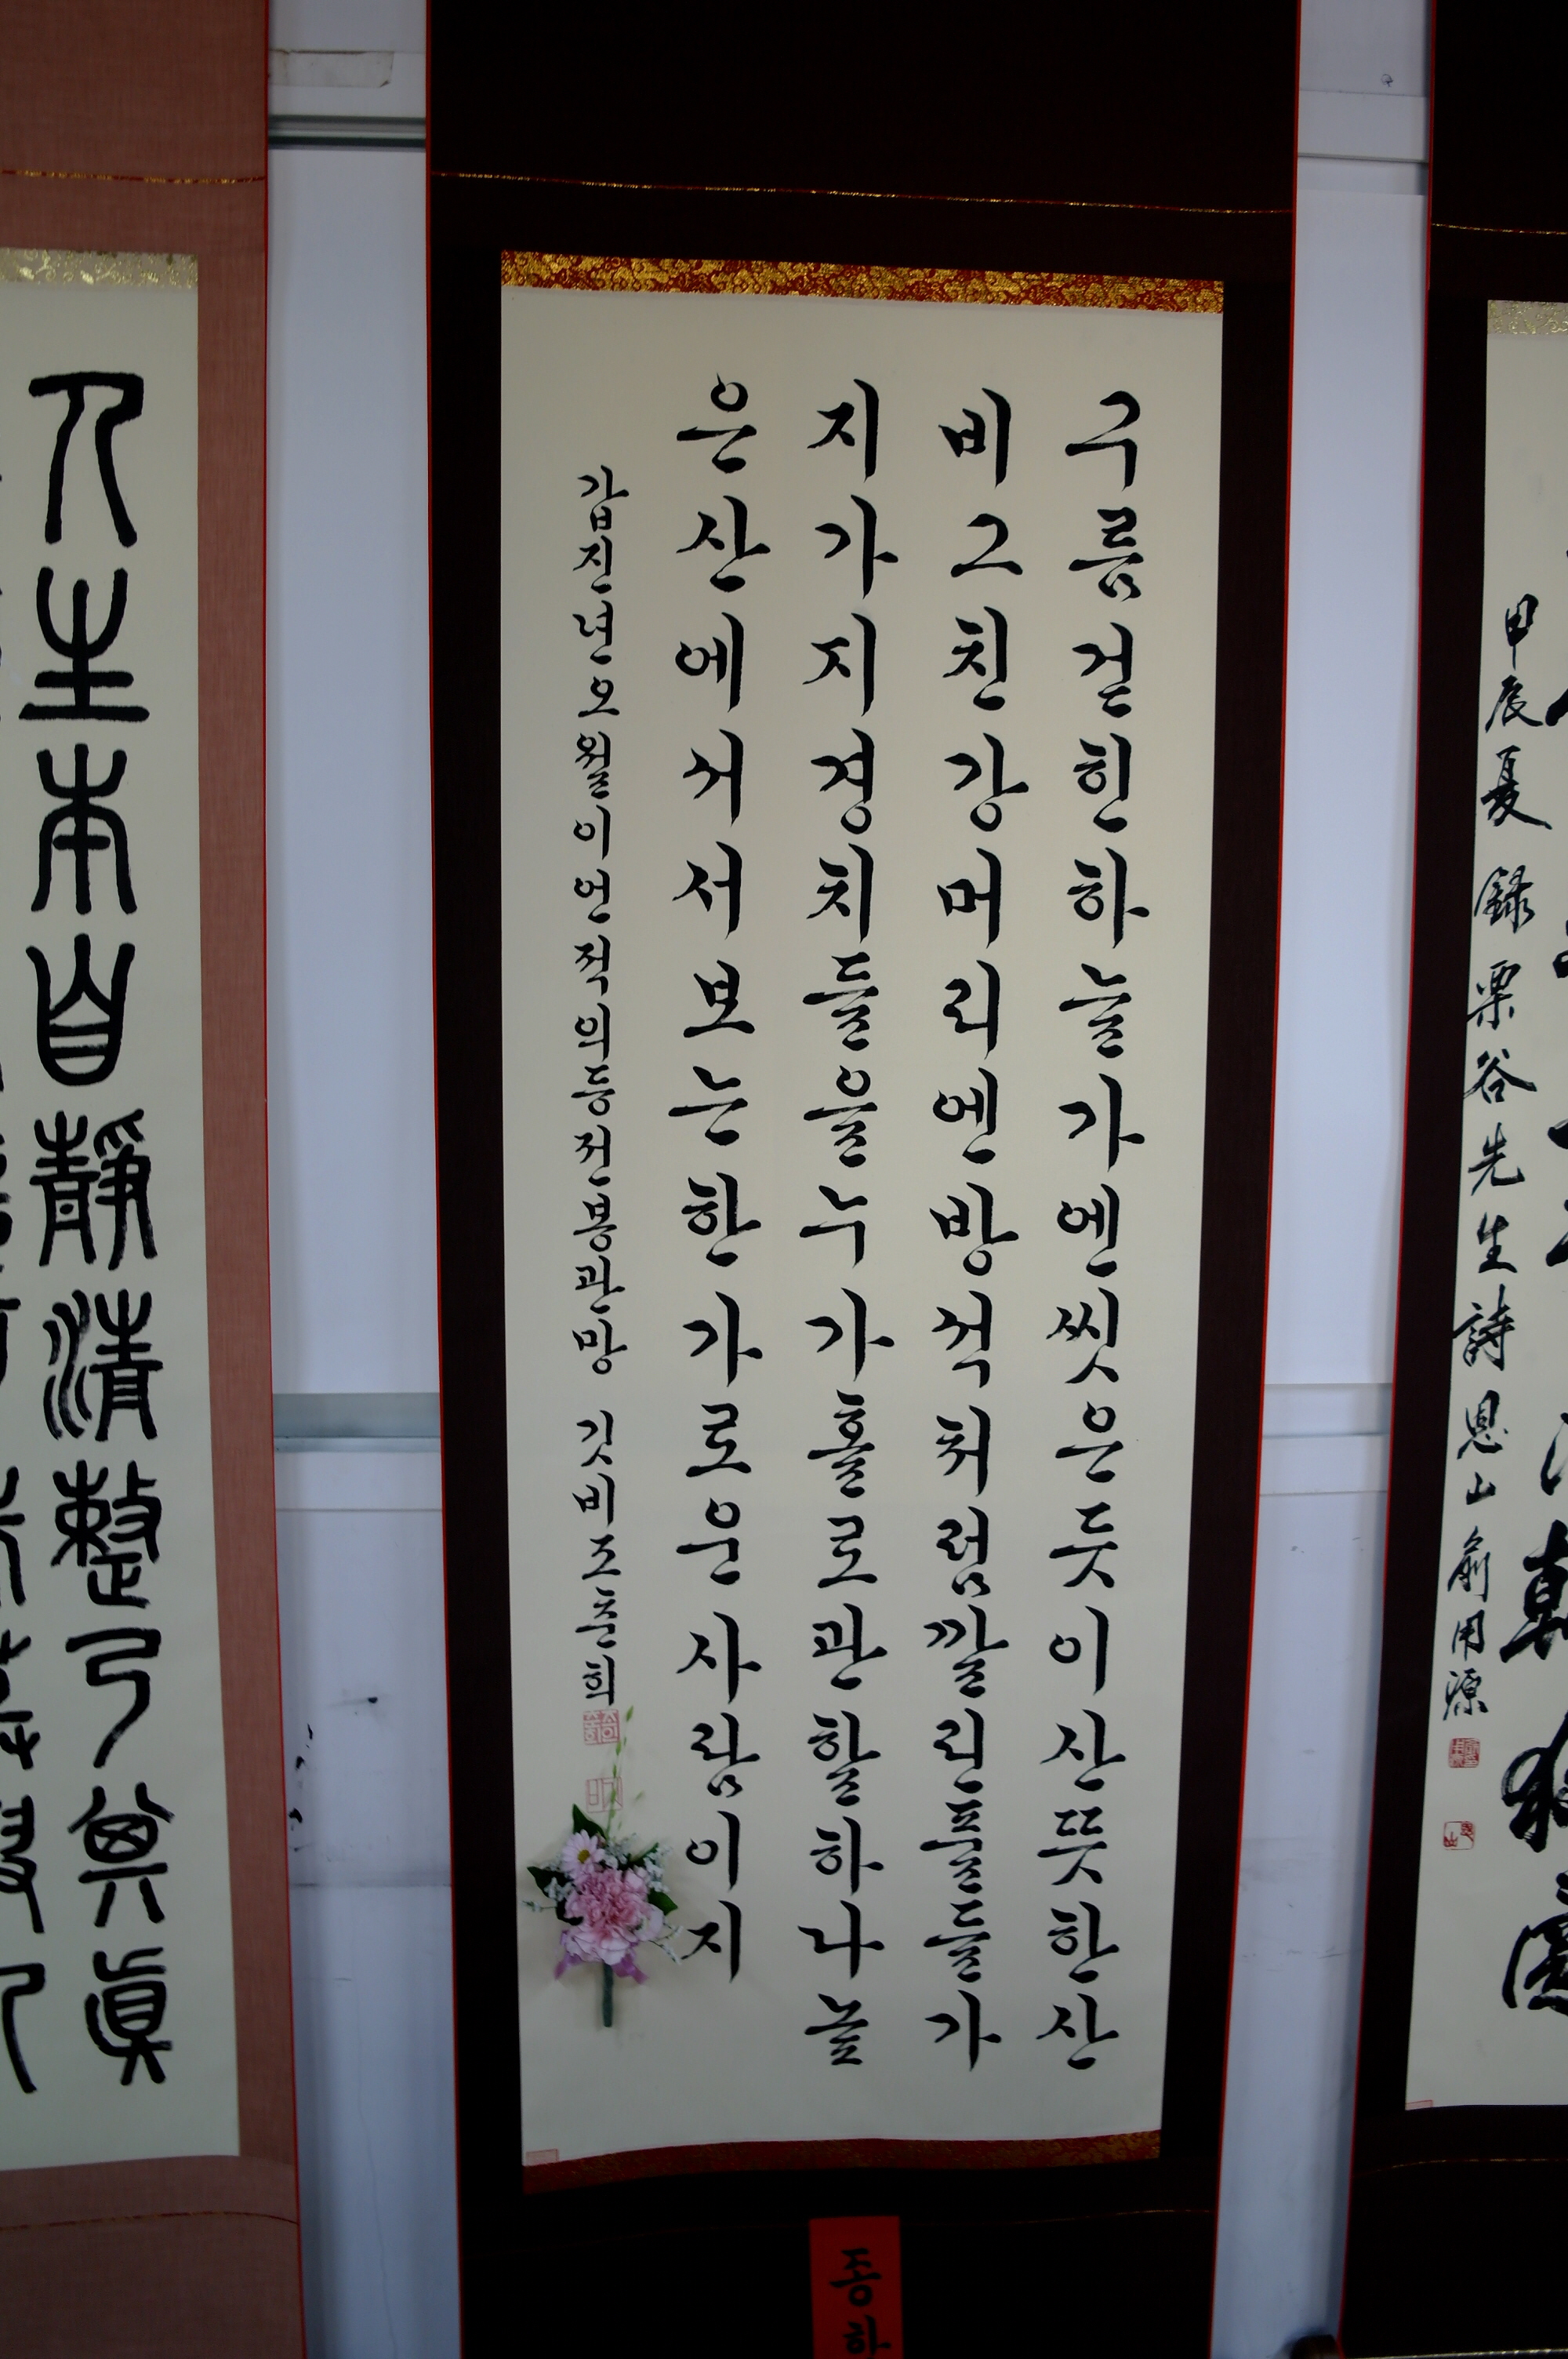 구름걷힌하늘가엔씻은듯이산뜻한산
비그친강머리엔방석처럼깔린풀들가
지가지경치들을누가홀로관할하나늘
은산에서서보는한가로운사람이지
갑진년오월이언적의등전봉관망 깃비조춘희
종하
人生本自靜清整乃其眞
甲辰夏 錄栗谷先生詩 恩山 俞用源